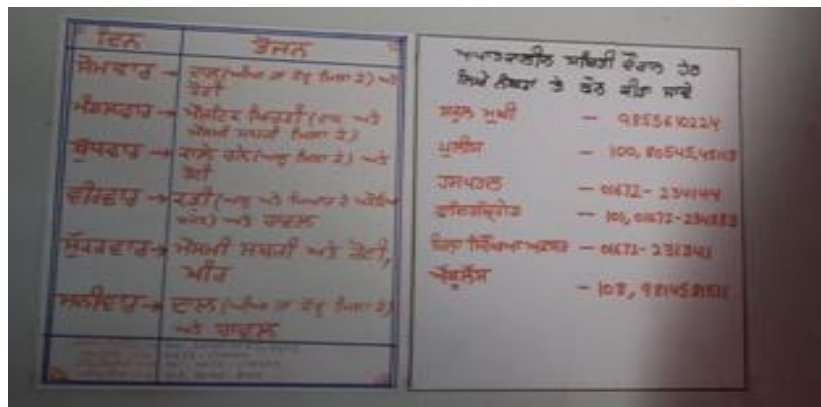 ਦਿਨ ਭੋਜਨ
ਸੋਮਵਾਰ → ਦਾਲ (ਘੀਆ ਜਾਂ ਕੱਦੂ ਮਿਲਾ ਕੇ) ਅਤੇ
ਰੋਟੀ
ਮੰਗਲਵਾਰ → ਪੌਸ਼ਟਿਕ ਖਿਚੜੀ (ਦਾਲ ਅਤੇ
ਮੌਸਮੀ ਸਬਜ਼ੀ ਮਿਲਾ ਕੇ)
ਬੁੱਧਵਾਰ → ਕਾਲੇ ਚਨੇ (ਆਲੂ ਮਿਲਾ ਕੇ) ਅਤੇ
ਰੋਟੀ
ਵੀਰਵਾਰ → ਕੜੀ (ਆਲੂ ਅਤੇ ਪਿਆਜ਼ ਦੇ
ਅਤੇ ਚਾਵਲ
ਸ਼ੁੱਕਰਵਾਰ → ਮੌਸਮੀ ਸਬਜ਼ੀ ਅਤੇ ਰੋਟੀ,
ਖੀਰ
ਸ਼ਨੀਵਾਰ → ਦਾਲ (ਘੀਆ ਜਾਂ ਕੱਦੂ ਮਿਲਾ ਕੇ)
ਅਤੇ ਚਾਵਲ
ਸਥਿਤੀ ਦੌਰਾਨ ਹੇਠ
ਲਿਖੇ ਨੰਬਰਾਂ ਤੇ ਫੋਨ ਕੀਤਾ ਜਾਵੇ
ਸਕੂਲ ਮੁਖੀ - 9855610224
ਪੁਲੀਸ - 100,
ਹਸਪਤਾਲ - 01672-234144
ਫਾਇਰਬ੍ਰਿਗੇਡ - 101,
ਜ਼ਿਲ੍ਹਾ ਸਿੱਖਿਆ ਅਫਸਰ - 01672-231341
ਐਂਬੂਲੈਂਸ
- 108,